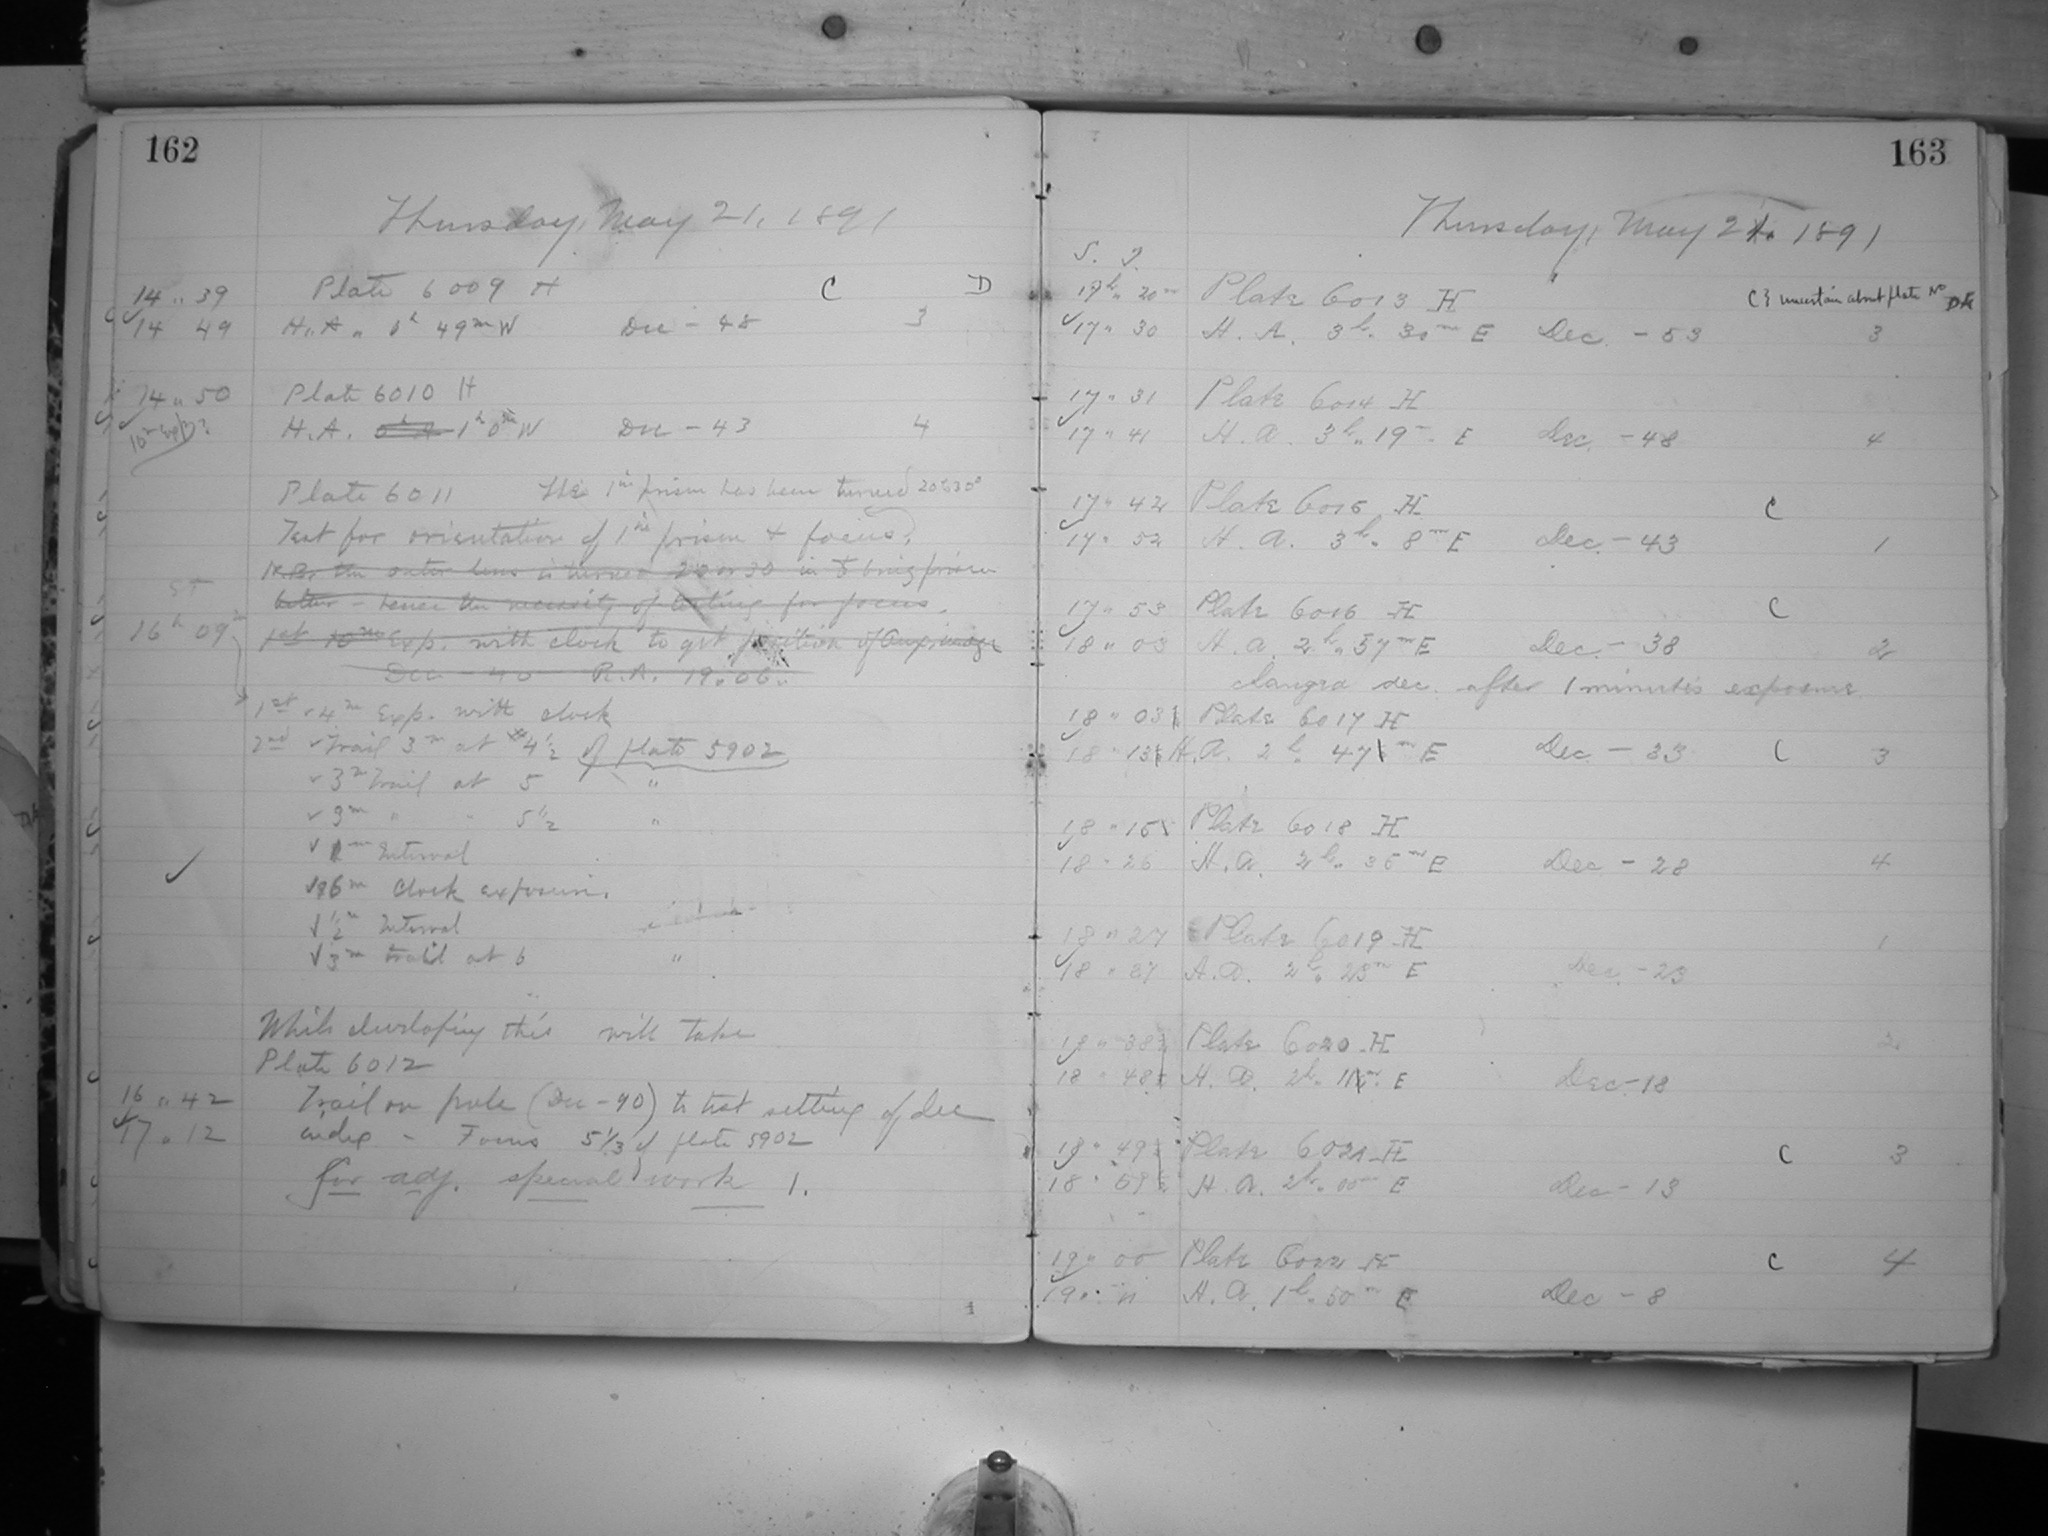 162
Thursday, May 21, 1891
14 " 39 Plate 6009 H C D
14 49 H. A. 0h 49m W Dec - 48 3
14 " 50 Plate 6010 H
10m Exp? H. A. 1h 0m W Dec - 43 4
Plate 6011 The 1st prism has been turned 20 or 30°
Test for orientation of 1st prism & focus.
the outer lens is turned 20 or 30 in to bring prism
better - hence the necessity of testing for focus.
ST
16h 09m 1st 10m Exp. with clock to get position of
Dec - 40 R.A. 19 " 06
1st 4m Exp. with clock
2nd Trail 3m at 4 1/2 of plate 5902
3m Trail at 5 "
3m " " 5 1/2 "
1m Interval
6m clock exposure.
1/2m Interval
3m trail at 6 "
While developing this will take
Plate 6012
16 " 42 Trail on pole (Dec - 90) to test setting of dec
17 " 12 index - Focus 5 1/3 of plate 5902
for adj. special work 1.
163
Thursday, May 21, 1891
S. T.
17h " 20m Plate 6013 H C & uncertain about plate No DH
17 " 30 H. A. 3h " 30m E Dec. - 53 3
17 " 31 Plate 6014 H
17 " 41 H. A. 3h " 19m E Dec. - 48 4
17 " 42 Plate 6015 H C
17 " 52 H. A. 3h " 8m E Dec. - 43 1
17 " 53 Plate 6016 H C
18 " 03 H. A. 2h " 57m E Dec. - 38 2
changed dec. after 1 minute's exposure
18 " 03 Plate 6017 H
18 " 13 H. A. 2h " 47m E Dec - 33 C 3
18 " 15 Plate 6018 H
18 " 26 H. A. 2h " 35m E Dec - 28 4
18 " 27 Plate 6019 H 1
18 " 37 H. A. 2h " 23m E Dec. - 23
18 " 38 Plate 6020 H 2
18 " 48 H. A. 2h " 11m E Dec - 18
18 " 49 Plate 6021 H C 3
18 " 59 H. A. 2h " 00m E Dec - 13
19 " 00 Plate 6022 H C 4
19 " 11 H. A. 1h " 50m E Dec - 8